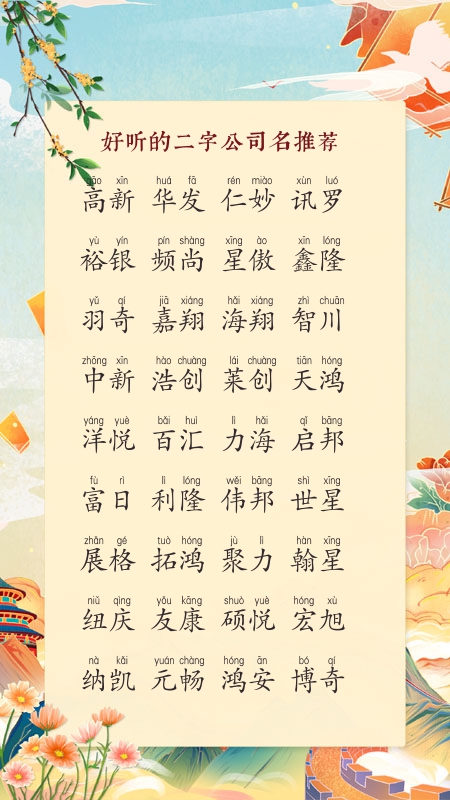 好听的二字公司名推荐
gāo xīn huá fā rén miào xùn luó
高新 华发 仁妙 讯罗
yù yín pín shàng xīng ào xīn lóng
裕银 频尚 星傲 鑫隆
yǔ qí jiā xiáng hǎi xiáng zhì chuān
羽奇 嘉翔 海翔 智川
zhōng xīn hào chuàng lái chuàng tiān hóng
中新 浩创 莱创 天鸿
yáng yuè bǎi huì lì hǎi qǐ bāng
洋悦 百汇 力海 启邦
fù rì lì lóng wěi bāng shì xīng
富日 利隆 伟邦 世星
zhǎn gé tuò hóng jù lì hàn xīng
展格 拓鸿 聚力 翰星
niǔ qìng yǒu kāng shuò yuè hóng xù
纽庆 友康 硕悦 宏旭
nà kǎi yuán chàng hóng ān bó qí
纳凯 元畅 鸿安 博奇